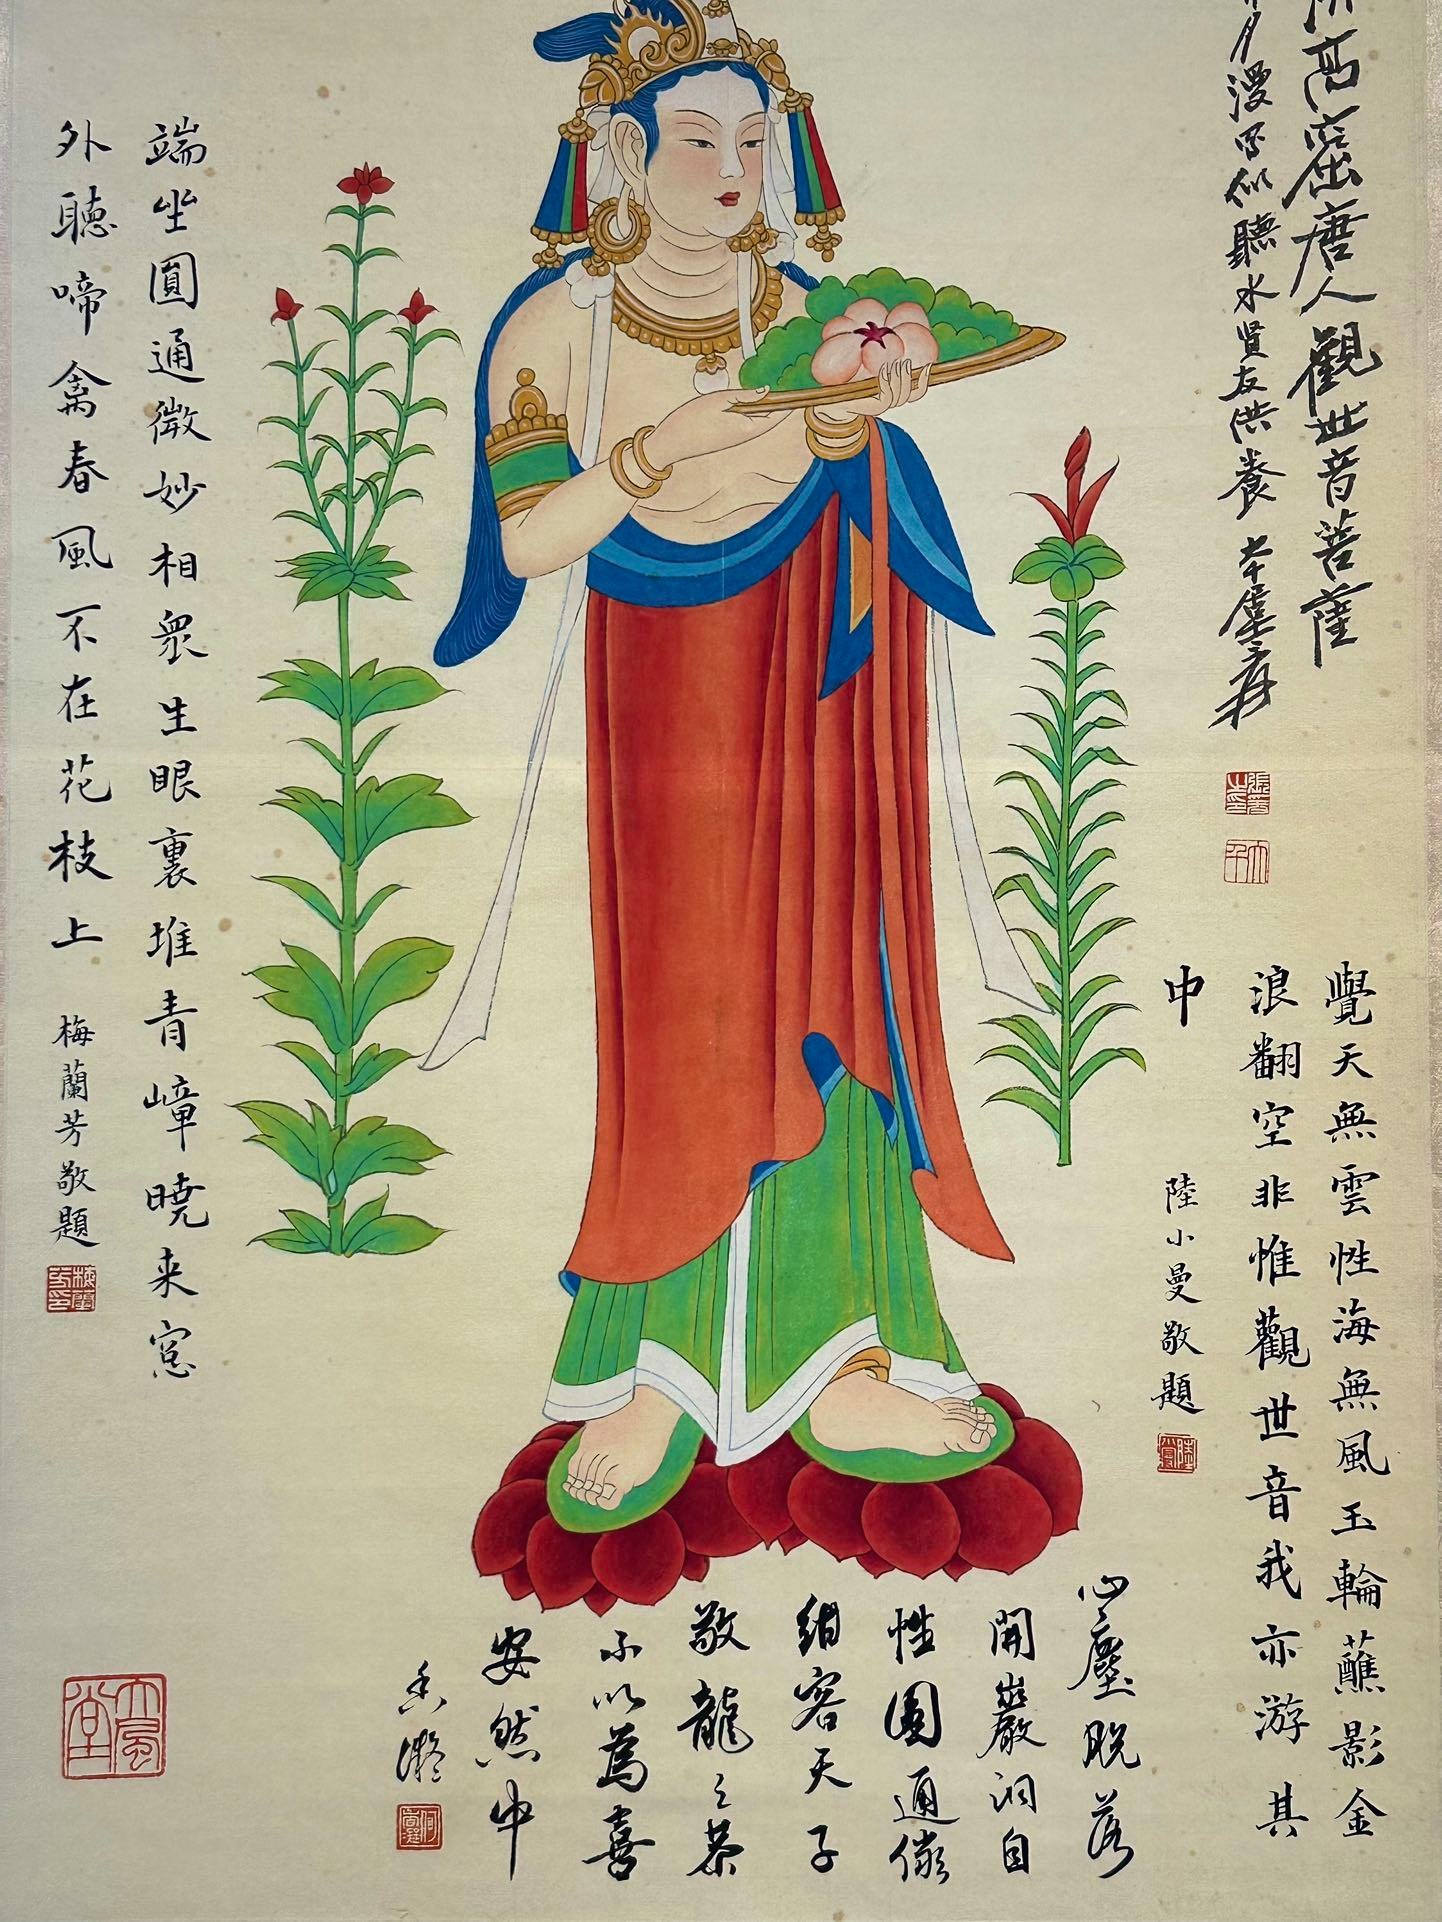 高窟唐人觀世音菩薩
夕漫寫似聽水賢友供養 大千張爰
張爰之印
大千
覺天無雲性海無風玉輪蘸影金
浪翻空非惟觀世音我亦游其
中
陸小曼敬題
心塵脫落
開巖洞自
性圓通儼
紺容天子
敬龍之恭
不以為喜
安然中
香凝
端坐圓通微妙相眾生眼裏堆青嶂曉来窓
外聽啼禽春風不在花枝上
梅蘭芳敬題
大風堂